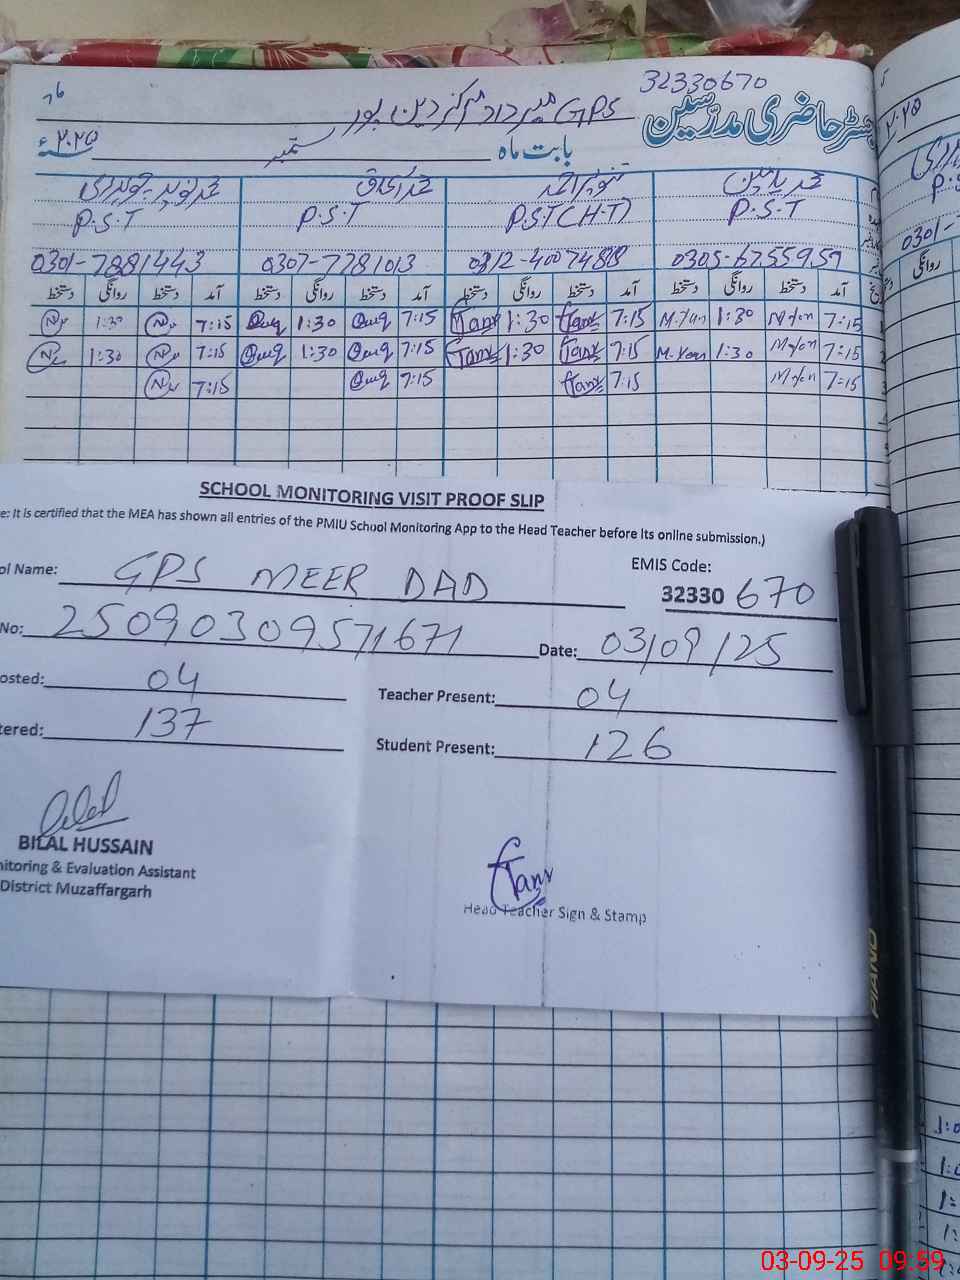 32330670
GPS میرداد مرکز دین پور
رجسٹر حاضری مدرسین
بابت ماہ ستمبر ۲۰۲۵
محمد یامین
P.S.T
0305-6755959
تنویر احمد
PST(H.T)
0312-4007488
P.S.T
0307-7781013
P.S.T
0301-7881443
آمد دستخط روانگی دستخط آمد دستخط روانگی دستخط آمد دستخط روانگی دستخط آمد دستخط روانگی دستخط
1:30 7:15 1:30 7:15 Tanv 1:30 Tanv 7:15 M.Yan 1:30 7:15
1:30 7:15 1:30 7:15 Tanv 1:30 Tanv 7:15 1:30 7:15
7:15 7:15 Tanv 7:15 7:15
SCHOOL MONITORING VISIT PROOF SLIP
e: It is certified that the MEA has shown all entries of the PMIU School Monitoring App to the Head Teacher before its online submission.)
ol Name: GPS MEER DAD
EMIS Code:
32330 670
No: 25090309571671
Date: 03/09/25
osted: 04
Teacher Present: 04
tered: 137
Student Present: 126
BILAL HUSSAIN
nitoring & Evaluation Assistant
District Muzaffargarh
Tanv
Head Teacher Sign & Stamp
PIANO
03-09-25 09:59